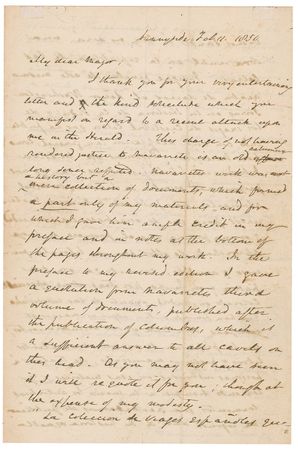 Sunnyside Feb 11. 1850.
My dear Major,
I thank you for your very entertaining
letter and the kind solicitude which you
manifest in regard to a recent attack upon
me in the Herald. This charge of not having
rendered justice to Navarrete is an old
long since refuted. Navarretes work was not
a history but a
mere collection of documents, which formed
a part only of my materials and for
which I gave him ample credit in my
preface and in notes at the bottom of
the pages throughout my work. In the
preface to my revised edition I gave
a quotation from Navarretes third
volume of documents, published after
the publication of Columbus, which is
a sufficient answer to all cavils on
this head. As you may not have seen
it I will requote it for you; though at
the expense of my modesty.
"La Coleccion de Viages Españoles que